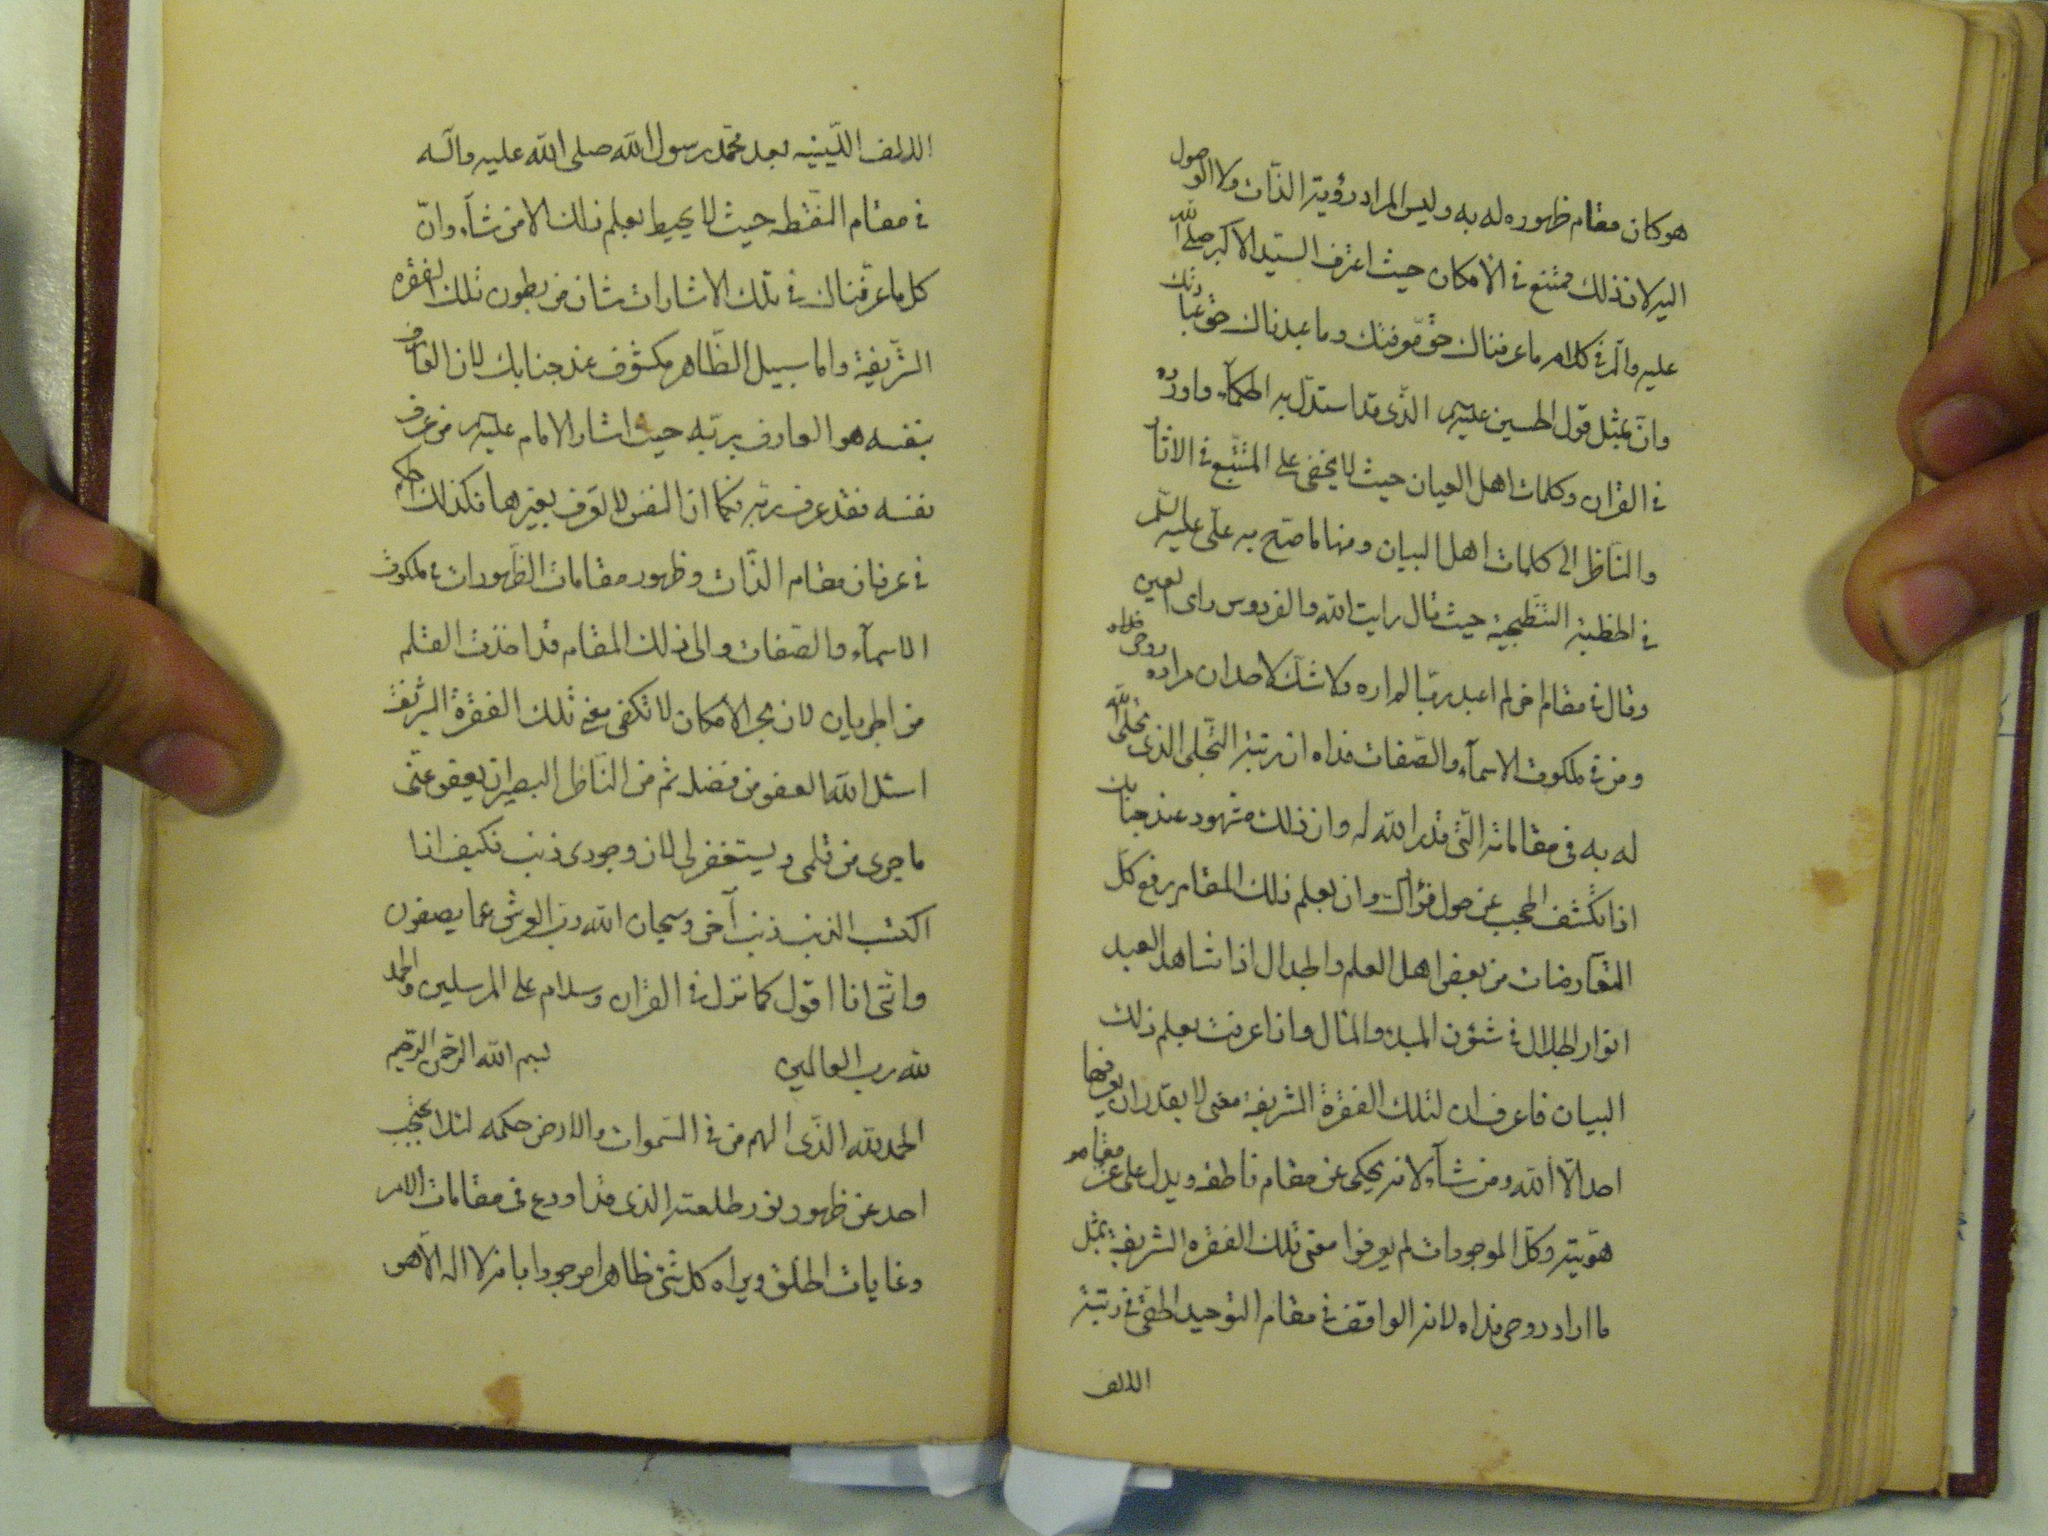 هو كان مقام ظهوره له به وليس المراد رؤية الذات ولا الوصول
اليه لان ذلك ممتنع في الامكان حيث اعترف السيد الاكبر صلى الله
عليه وآله في كلامه ما عرفناك حق معرفتك وما عبدناك حق عبادتك
وان بمثل قول الحسين عليه السلم الذي قد استدل به الحكماء وورد
في القران وكلمات اهل العيان حيث لا يخفى على المتتبع في الاثار
والناظر الى كلمات اهل البيان ومنها ما صرح به علي عليه السلم
في الخطبة التطنجية حيث قال رايت الله والفردوس راى العين
وقال في مقام اخر لم اعبد ربا لم اره ولا شك لاحد ان مراده روحي فداه
ومن في ملكوت الاسماء والصفات فداه ان رتبة التجلي الذي تجلى الله
له به في مقاماته التي قدر الله له وان ذلك مشهود عند جنابك
اذا تكشف الحجب عن حول فؤادك وان بعلم ذلك المقام يرفع كل
المتعارضات من بعض اهل العلم والجدال اذا شاهد العبد
انوار الجلال في شئون المبدء والمال واذا عرفت بعلم ذلك
البيان فاعرف ان لتلك الفقرة الشريفة معنى لا يقدر ان يعرفها
احد الا الله ومن شاء لانه يحكي عن مقام ناطقه ويدل على عز مقام
هويته وكل الموجودات لم يعرفوا معنى تلك الفقرة الشريفة بمثل
ما اراد روحي فداه لانه الواقف في مقام التوحيد الحق في رتبة
الالف
الالف اللينيه بعد محمد رسول الله صلى الله عليه وآله
في مقام النقطه حيث لا يحيط بعلم ذلك الا من شاء وان
كل ما عرفناك في تلك الاشارات شان من بطون تلك الفقره
الشريفة واما سبيل الظاهر مكشوف عند جنابك لان العارف
بنفسه هو العارف بربه حيث اشار الامام عليه السلم من عرف
نفسه فقد عرف ربه فكما ان النفس لا تعرف بغيرها فكذلك الحكم
في عرفان مقام الذات وظهور مقامات الظهورات في ملكوت
الاسماء والصفات والى ذلك المقام قد اخذت القلم
من الجريان لان بحر الامكان لا تكفى معنى تلك الفقرة الشريفة
اسئل الله العفو من فضله ثم من الناظر البصير ان يعفو عنى
ما جرى من قلمى ويستغفر لى لان وجودى ذنب فكيف انا
اكتسب الذنب ذنب آخر وسبحان الله رب العرش عما يصفون
واننى انا اقول كما نزل في القران وسلام على المرسلين والحمد
لله رب العالمين بسم الله الرحمن الرحيم
الحمد لله الذى الهم من في السموات والارض حكمه لئلا يحتجب
احد عن ظهور نور طلعته الذى قد اودع في مقامات الامر
وغايات الخلق ويراه كل شئ ظاهرا موجودا بانه لا اله الا هو